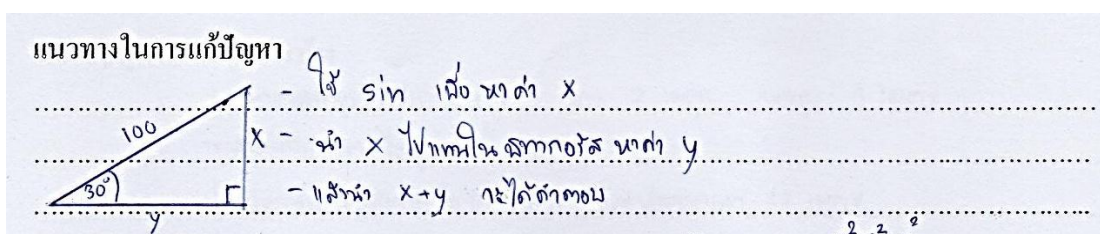 แนวทางในการแก้ปัญหา
- ใช้ sin เพื่อ หาค่า x
100
x
- นำ x ไปแทนใน พีทากอรัส หาค่า y
30°
- แล้วนำ x+y จะได้คำตอบ
y
2 2 2